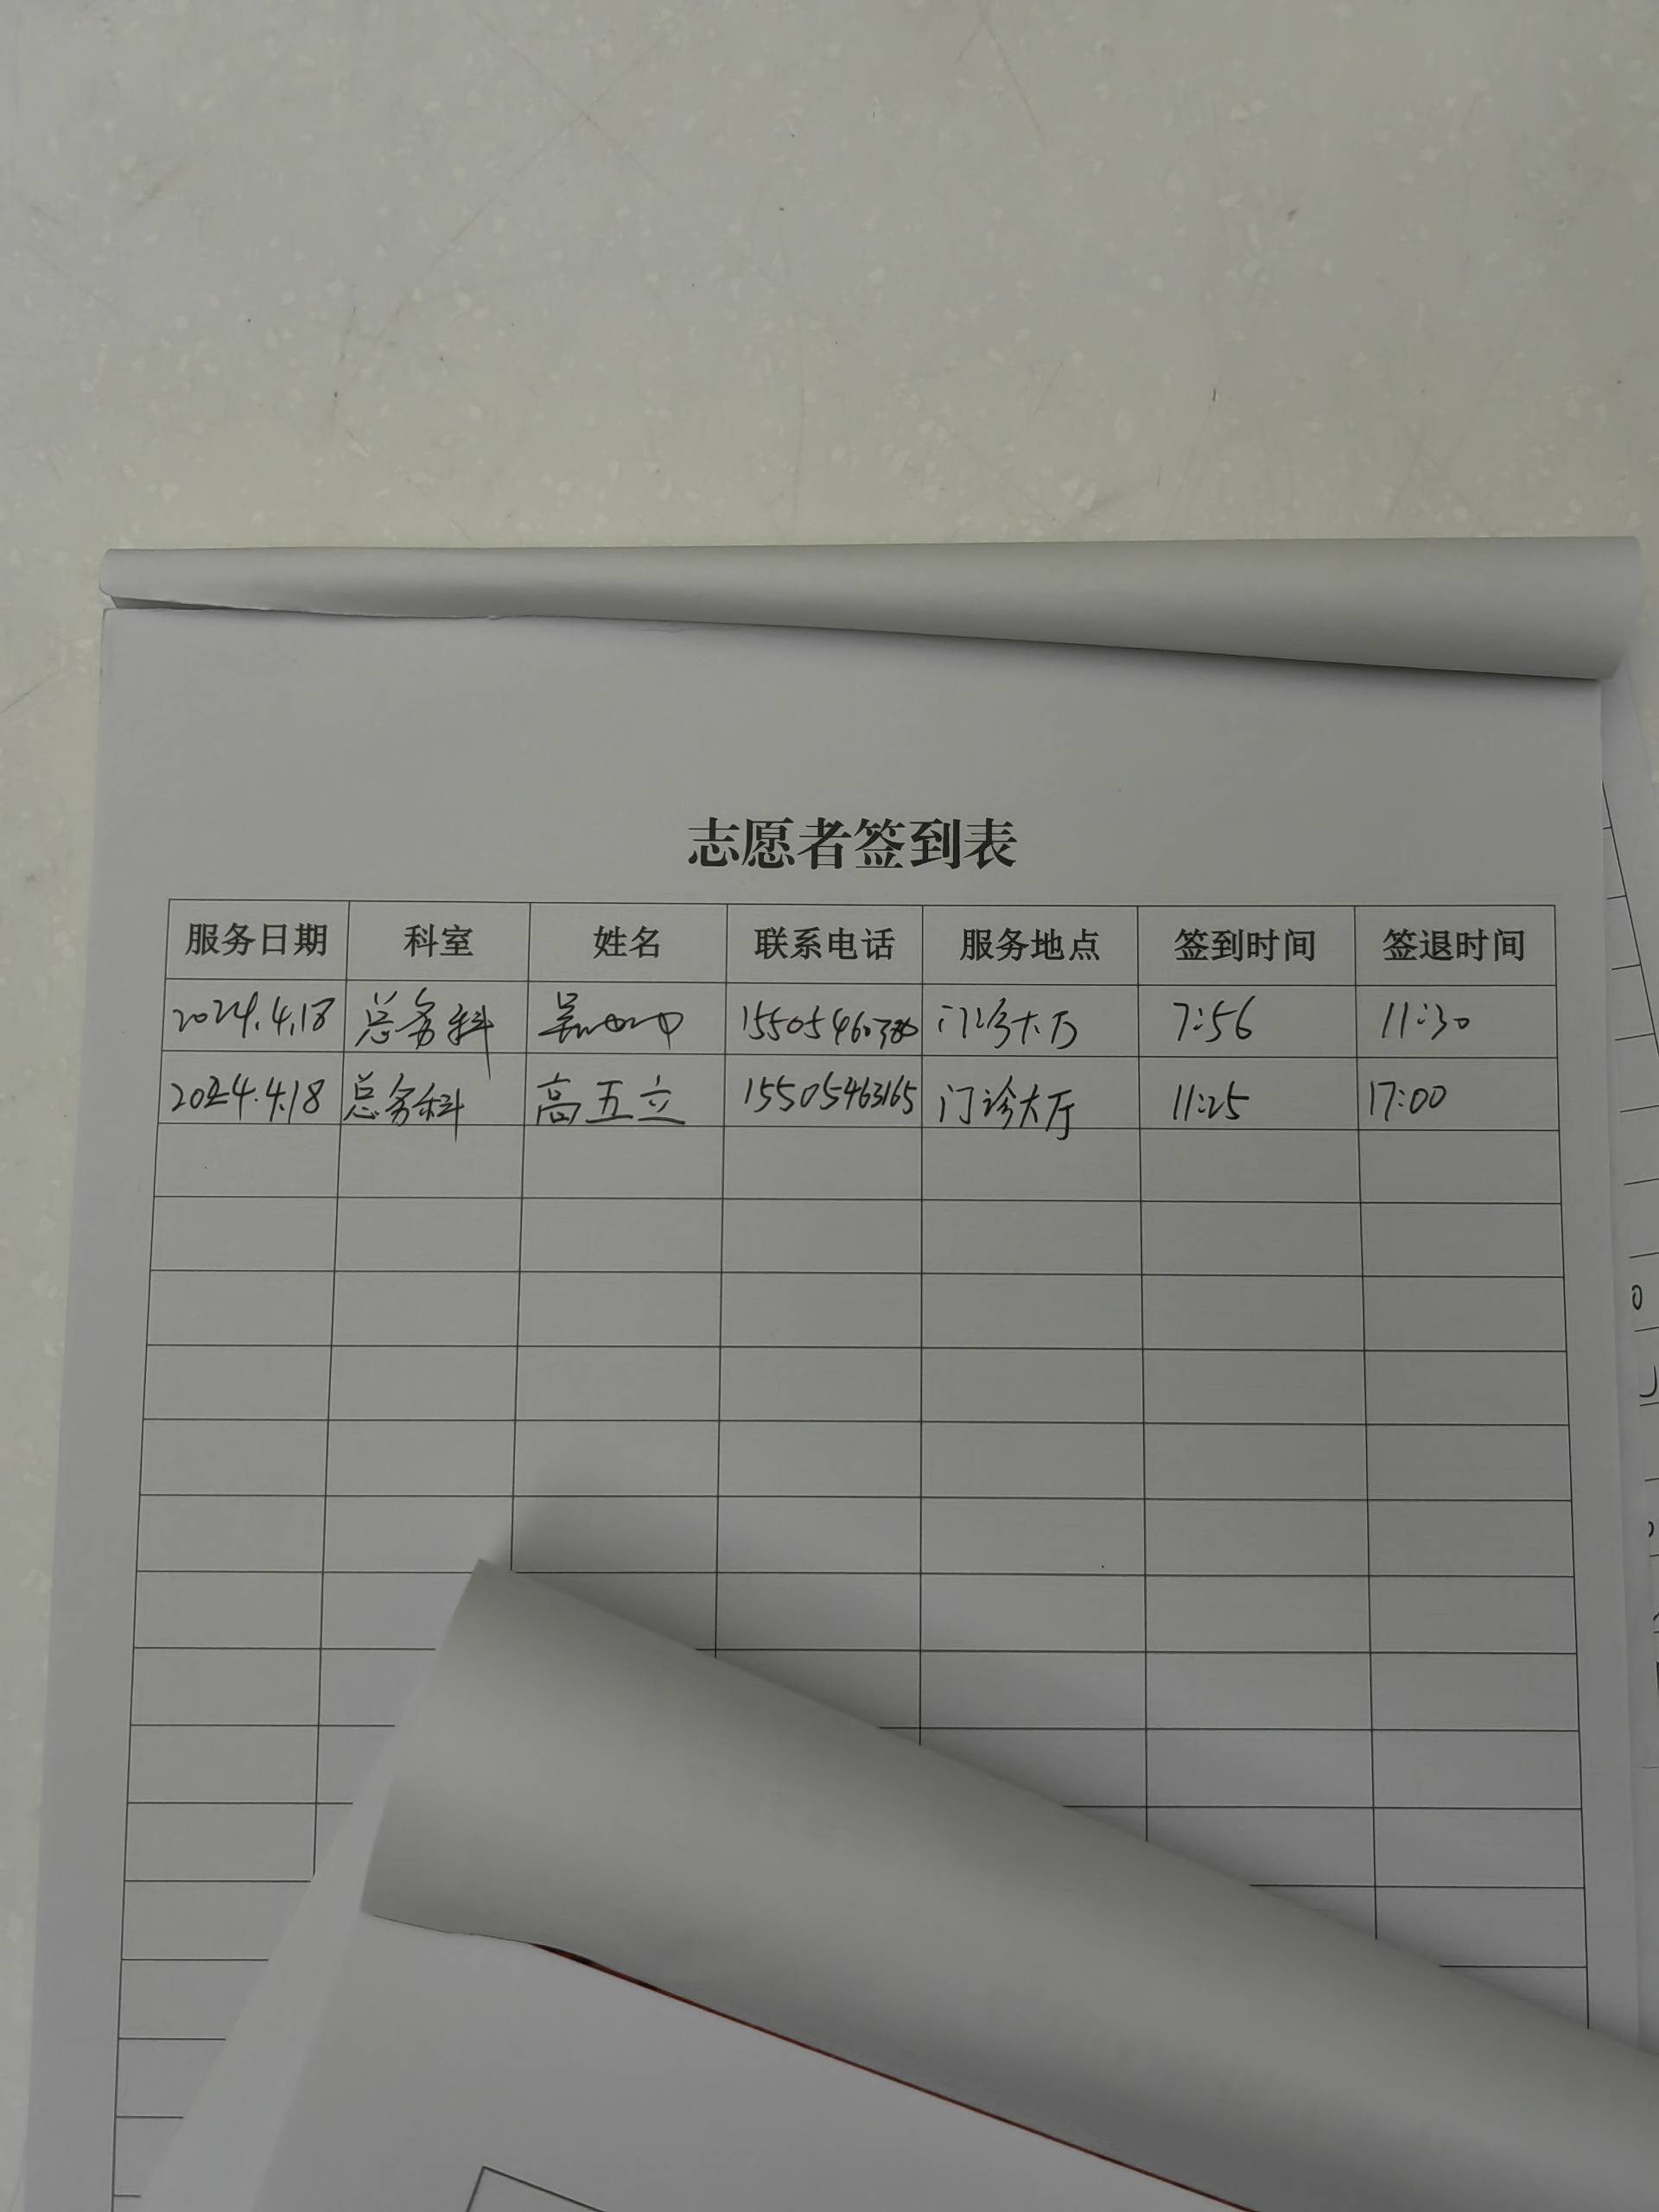 志愿者签到表
服务日期 科室 姓名 联系电话 服务地点 签到时间 签退时间
2024.4.18 总务科 吴 门诊大厅 7:56 11:30
2024.4.18 总务科 高五立 15505463165 门诊大厅 11:25 17:00